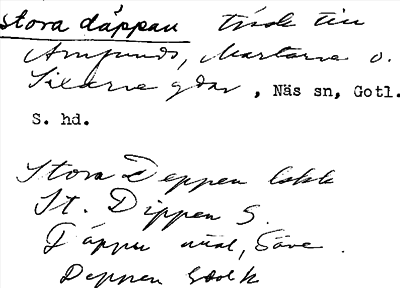 stora däppan träsk till
Amlunds, Martarve o.
Sixarve gdar, Näs sn, Gotl.
S. hd.
Stora Deppen lskk
St. Dippen S.
Däppu uål, Säve.
Deppen Gadk